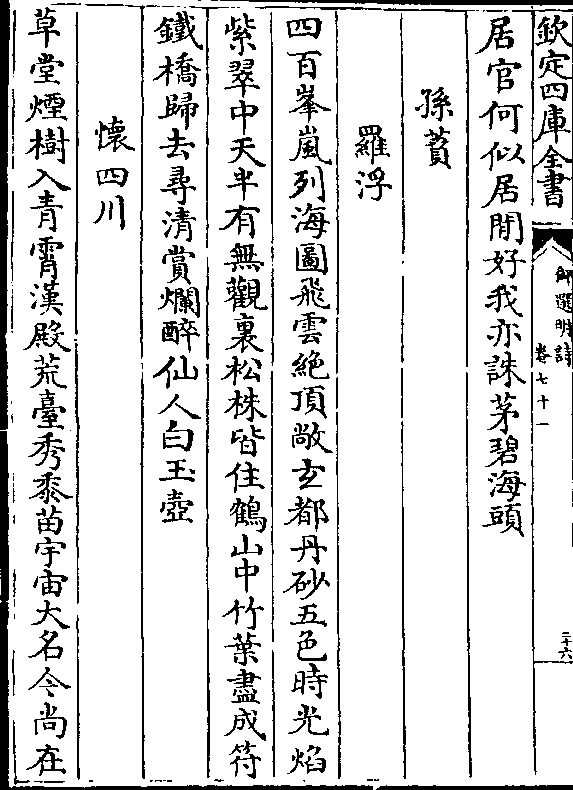 欽定四庫全書
御選明詩
卷七十一
二十六
居官何似居閒好我亦誅茅碧海頭
孫蕡
羅浮
四百峯嵐列海圖飛雲絶頂敞玄都丹砂五色時光焰
紫翠中天半有無觀裏松株皆住鶴山中竹葉盡成符
鐵橋歸去尋清賞爛醉仙人白玉壺
懷四川
草堂煙樹入青霄漢殿荒臺秀黍苗宇宙大名今尚在